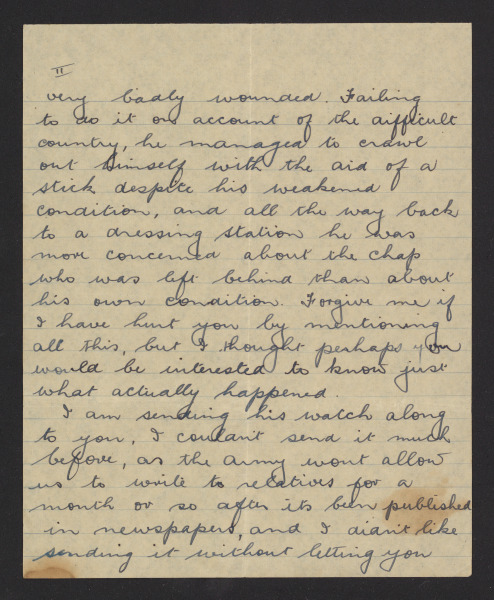 II
very badly wounded. Failing
to do it on account of the difficult
country, he managed to crawl
out himself with the aid of a
stick despite his weakened
condition, and all the way back
to a dressing station he was
more concerned about the chap
who was left behind than about
his own condition. Forgive me if
I have hurt you by mentioning
all this, but I thought perhaps you
would be interested to know just
what actually happened.
I am sending his watch along
to you, I couldn't send it much
before, as the army wont allow
us to write to relatives for a
month or so after its been published
in newspapers, and I didn't like
sending it without letting you